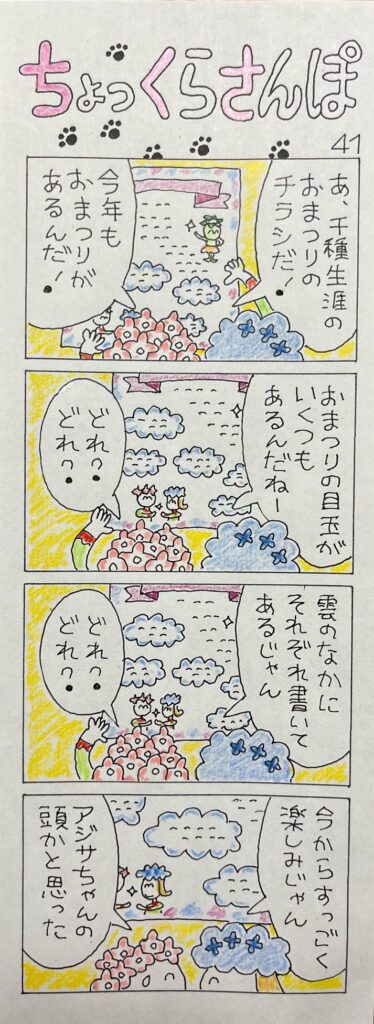 ちょっくらさんぽ
41
あ、千種生涯の
おまつりの
チラシだ!
今年も
おまつりが
あるんだ!
おまつりの目玉が
いくつも
あるんだねー
どれ?
どれ?
雲のなかに
それぞれ書いて
あるじゃん
どれ?
どれ?
今からすっごく
楽しみじゃん
アジサちゃんの
頭かと思った